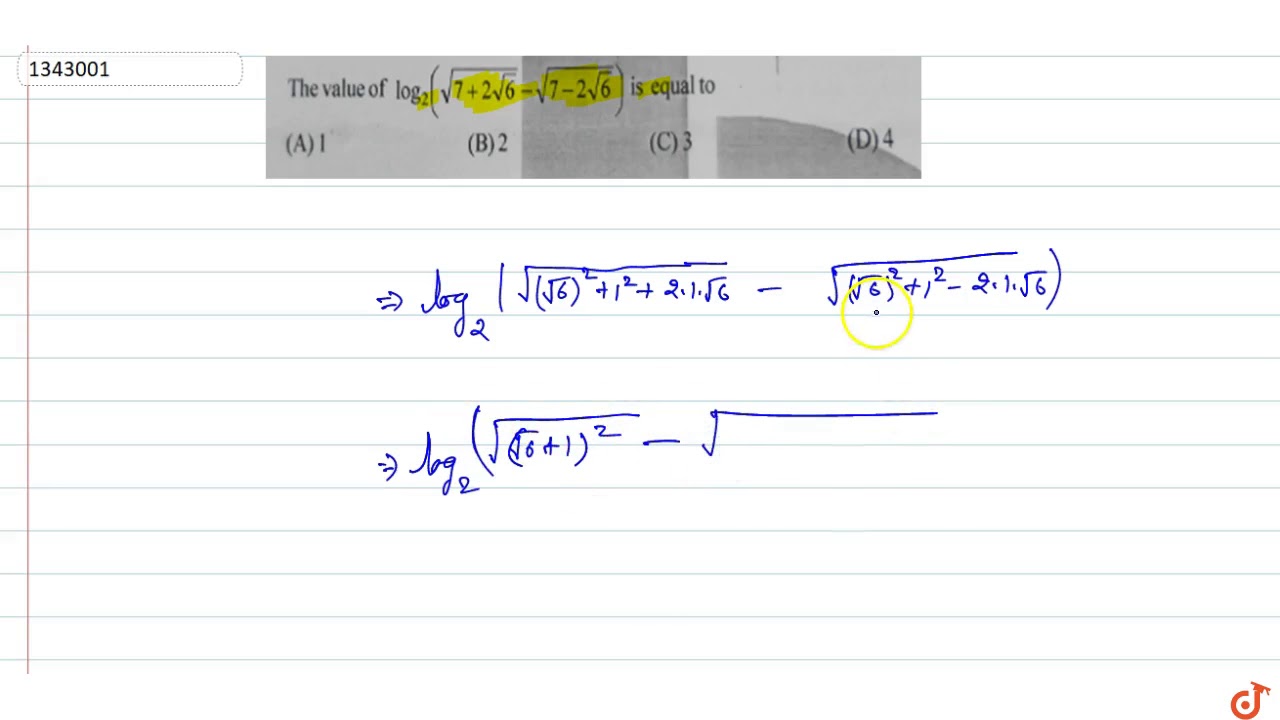 1343001
The value of log₂(√(7+2√6) − √(7−2√6)) is equal to
(A) 1 (B) 2 (C) 3 (D) 4
⇒ log₂(√((√6)²+1²+2.1.√6) − √((√6)²+1²−2.1.√6))
⇒ log₂(√((√6+1)²) − √